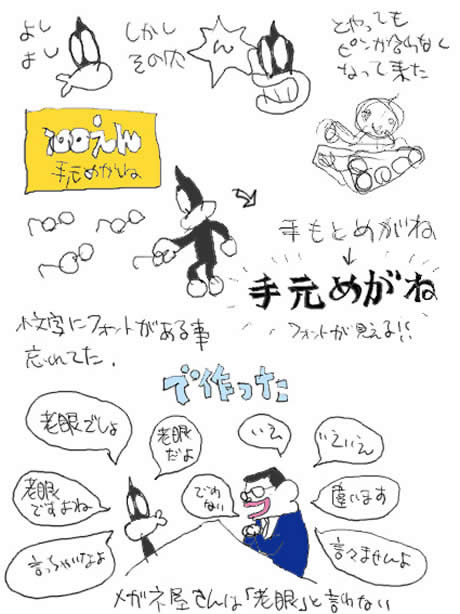 よし
よし
しかし
その次
ん
とやっても
ピンが合わなく
なって来た
100えん
手元めがね
手もとめがね
↓
手元めがね
フォントが見える!!
小文字にフォントがある事
忘れてた.
で作った
老眼でしょ
老眼
だよ
いえ
いえいえ
老眼
ですよね
でわ
ない
違います
言っちゃいなよ
言えませんよ
メガネ屋さんは「老眼」と言わない